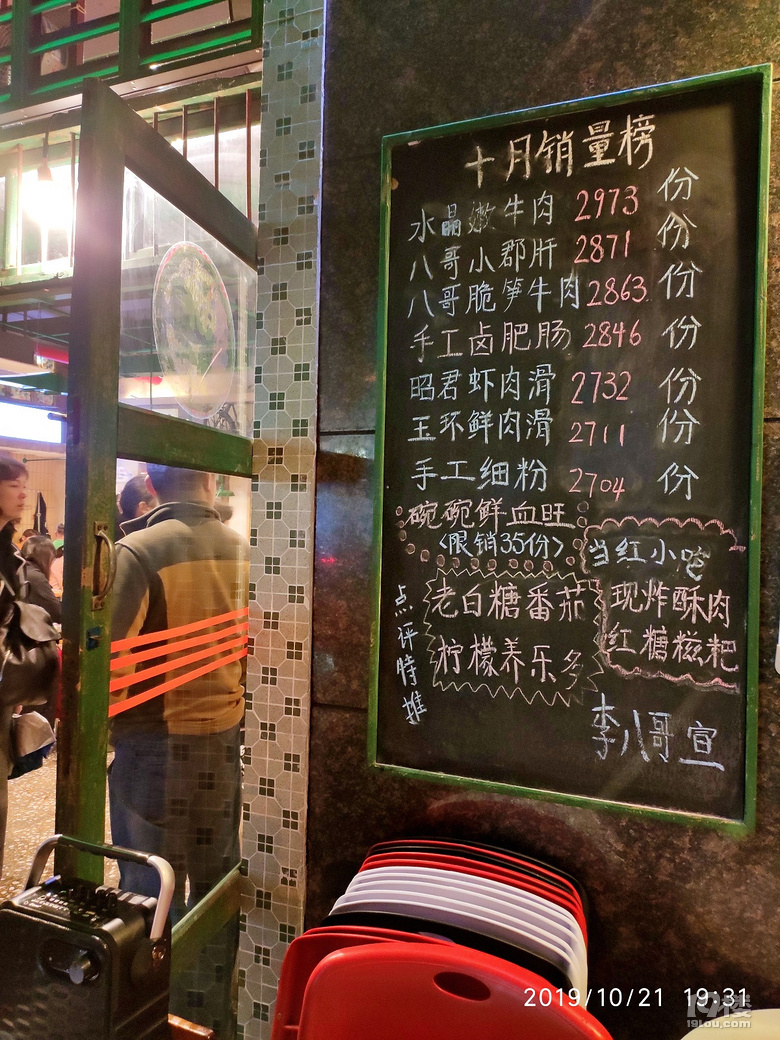 十月销量榜
水晶嫩牛肉 2973 份
八哥小郡肝 2871 份
八哥脆笋牛肉 2863 份
手工卤肥肠 2846 份
昭君虾肉滑 2732 份
玉环鲜肉滑 2711 份
手工细粉 2704 份
碗碗鲜血旺
<限销35份>
当红小吃
现炸酥肉
红糖糍粑
点评特推
老白糖番茄
柠檬养乐多
李八哥宣
2019/10/21 19:31
19楼
19lou.com